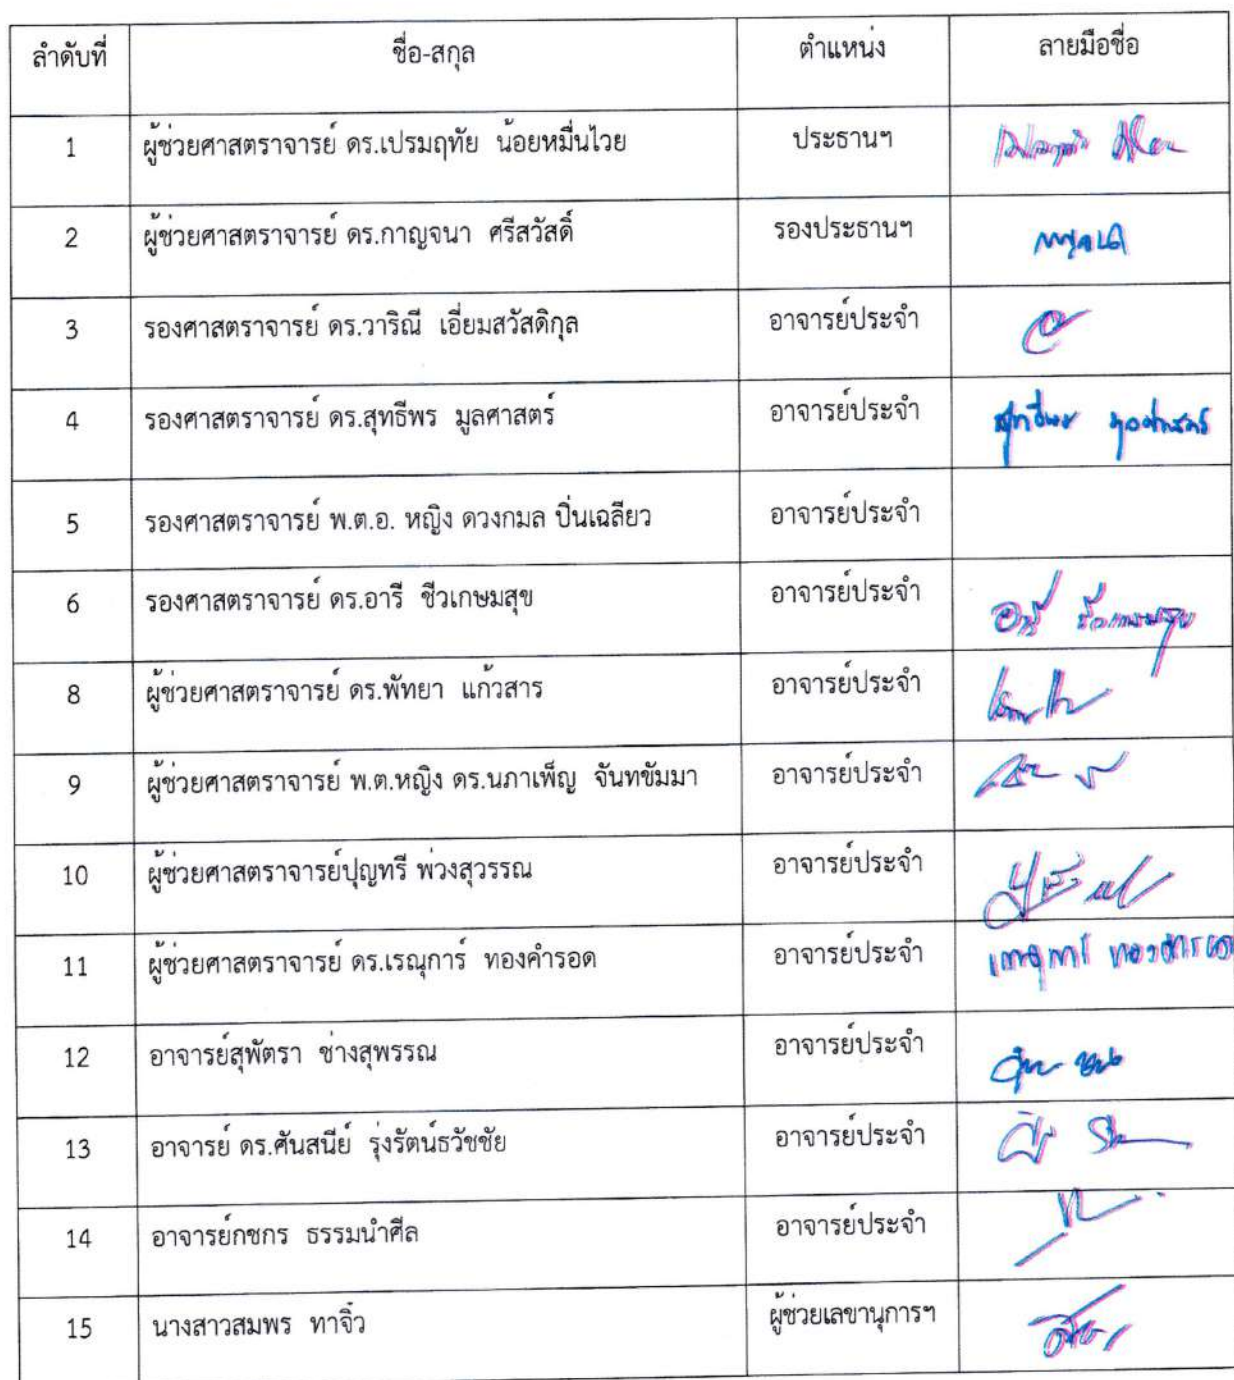 ลำดับที่ ชื่อ-สกุล ตำแหน่ง ลายมือชื่อ
1 ผู้ช่วยศาสตราจารย์ ดร.เปรมฤทัย น้อยหมื่นไวย ประธานฯ
2 ผู้ช่วยศาสตราจารย์ ดร.กาญจนา ศรีสวัสดิ์ รองประธานฯ
3 รองศาสตราจารย์ ดร.วาริณี เอี่ยมสวัสดิกุล อาจารย์ประจำ
4 รองศาสตราจารย์ ดร.สุทธีพร มูลศาสตร์ อาจารย์ประจำ สุทธีพร มูลศาสตร์
5 รองศาสตราจารย์ พ.ต.อ. หญิง ดวงกมล ปิ่นเฉลียว อาจารย์ประจำ
6 รองศาสตราจารย์ ดร.อารี ชีวเกษมสุข อาจารย์ประจำ อารี ชีวเกษมสุข
8 ผู้ช่วยศาสตราจารย์ ดร.พัทยา แก้วสาร อาจารย์ประจำ
9 ผู้ช่วยศาสตราจารย์ พ.ต.หญิง ดร.นภาเพ็ญ จันทขัมมา อาจารย์ประจำ
10 ผู้ช่วยศาสตราจารย์ปุญทรี พ่วงสุวรรณ อาจารย์ประจำ
11 ผู้ช่วยศาสตราจารย์ ดร.เรณุการ์ ทองคำรอด อาจารย์ประจำ เรณุการ์ ทองคำรอด
12 อาจารย์สุพัตรา ช่างสุพรรณ อาจารย์ประจำ
13 อาจารย์ ดร.ศันสนีย์ รุ่งรัตน์ธวัชชัย อาจารย์ประจำ
14 อาจารย์กชกร ธรรมนำศีล อาจารย์ประจำ
15 นางสาวสมพร ทาจิ๋ว ผู้ช่วยเลขานุการฯ